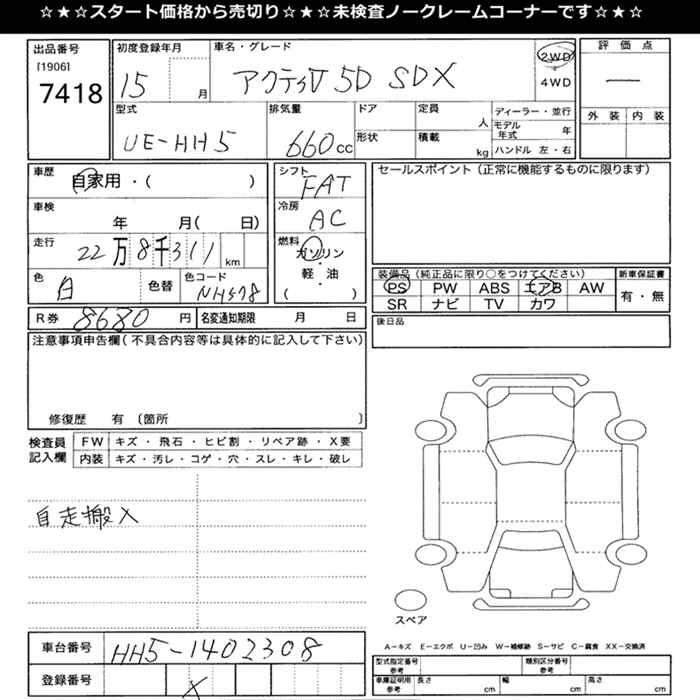 ☆★☆★スタート価格から売切り☆★☆★未検査ノークレームコーナーです☆★☆★
出品番号
[1906]
7418
初度登録年月
15 月
車名・グレード
アクティV 5D SDX
2WD
4WD
評価点
―
外装 内装
型式
UE-HH5
排気量
660cc
ドア
形状
定員
人
積載
kg
ディーラー・並行
モデル年式 年
ハンドル 左・右
車歴
自家用・( )
車検
年 月( 日)
走行
22万8千311km
色
白
色替
色コード
NH578
シフト
FAT
冷房
AC
燃料
ガソリン
・
軽・油
( )
セールスポイント(正常に機能するものに限ります)
装備品(純正品に限り○をつけてください)
PS PW ABS エアB AW
SR ナビ TV カワ
新車保証書
有・無
R券 8680 円
名変通知期限 月 日
後日品
注意事項申告欄(不具合内容等は具体的に記入して下さい)
修復歴 有 〔箇所 〕
検査員記入欄
FW キズ・飛石・ヒビ割・リペア跡・X要
内装 キズ・汚レ・コゲ・穴・スレ・キレ・破レ
自走搬入
スペア
A―キズ E―エクボ U―凹み W―補修跡 S―サビ C―腐食 XX―交換済
車台番号 HH5-1402308
登録番号 X
型式指定番号 参考
類別区分番号 参考
車庫証明用 参考
長さ cm
幅 cm
高さ cm